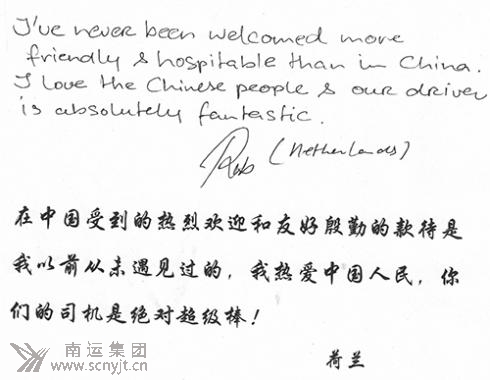 I've never been welcomed more
friendly & hospitable than in China.
I love the Chinese people & our driver
is absolutely fantastic.
Rob (Netherlands)
在中国受到的热烈欢迎和友好殷勤的款待是
我以前从未遇见过的，我热爱中国人民，你
们的司机是绝对超级棒！
荷兰
南运集团
www.scnyjt.cn